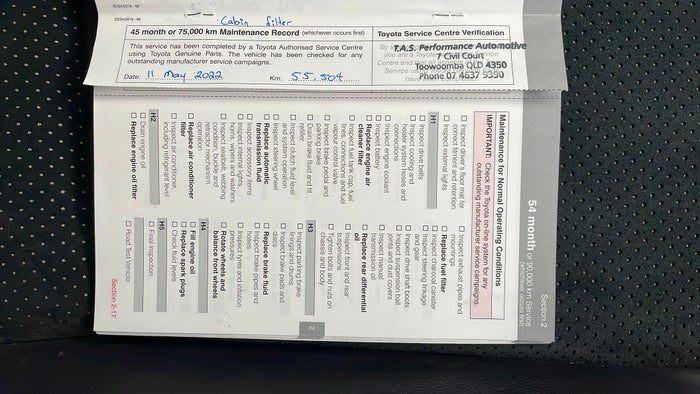 20/04/2018 - M6
20/04/2018 - M6
Cabin filter
45 month or 75,000 km Maintenance Record (whichever occurs first)
This service has been completed by a Toyota Authorised Service Centre
using Toyota Genuine Parts. The vehicle has been checked for any
outstanding manufacturer service campaigns.
Date: 11 May 2022 Km: 55,504
Toyota Service Centre Verification
T.A.S. Performance Automotive
7 Civil Court
Toowoomba QLD 4350
Phone 07 4637 9390
Section 2
54 month or 90,000 km Service
(whichever occurs first)
Maintenance for Normal Operating Conditions
IMPORTANT: Check the Toyota on-line system for any
outstanding manufacturer service campaigns.
Inspect driver's floor mat for
correct fitment and retention
Inspect external lights
H1
Inspect drive belts
Inspect cooling and
heater system hoses and
connections
Inspect engine coolant
Inspect battery
Replace engine air
cleaner filter
Inspect fuel tank cap, fuel
lines, connections and fuel
vapour control valve
Inspect brake pedal and
parking brake
Drain brake fluid and fit
refiller
Inspect clutch fluid level
and system operation
Inspect steering wheel
Replace automatic
transmission fluid
Inspect accessory items
Inspect internal lights,
horns, wipers and washers
Inspect seatbelt, webbing
condition, buckle and
retractor mechanism
operation
Replace air conditioner
filter
Inspect air conditioner,
including refrigerant level
H2
Drain engine oil
Replace engine oil filter
Inspect exhaust pipes and
mountings
Replace fuel filter
Inspect charcoal canister
Inspect steering linkage
and gear
Inspect drive shaft boots
Inspect suspension ball
joints and dust covers
Inspect manual
transmission oil
Replace rear differential
oil
Inspect front and rear
suspension
Tighten bolts and nuts on
chassis and body
H3
Inspect parking brake
linings and drums
Inspect brake pads and
discs
Replace brake fluid
Inspect brake pipes and
hoses
Inspect tyres and inflation
pressures
Rotate wheels and
balance front wheels
H4
Fill engine oil
Replace spark plugs
Check fluid levels
H5
Final inspection
Road Test Vehicle
2
Section 2-17